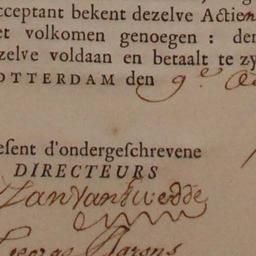 cceptant bekent dezelve Actien
et volkomen genoegen : der
zelve voldaan en betaalt te zy
OTTERDAM den 9.e
esent d'ondergeschrevene
DIRECTEURS
George